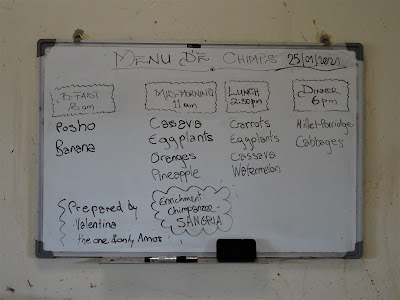 MENU DE CHIMPS 25/01/2021
B-FAST
8am
Posho
Banana
MID-MORNING
11am
Cassava
Eggplants
Oranges
Pineapple
LUNCH
2:30pm
Carrots
Eggplants
Cassava
Watermelon
DINNER
6pm
Millet-Porridge
Cabbages
Prepared by
Valentina
the one &only Amos
Enrichment
Chimpanzee
SANGRIA